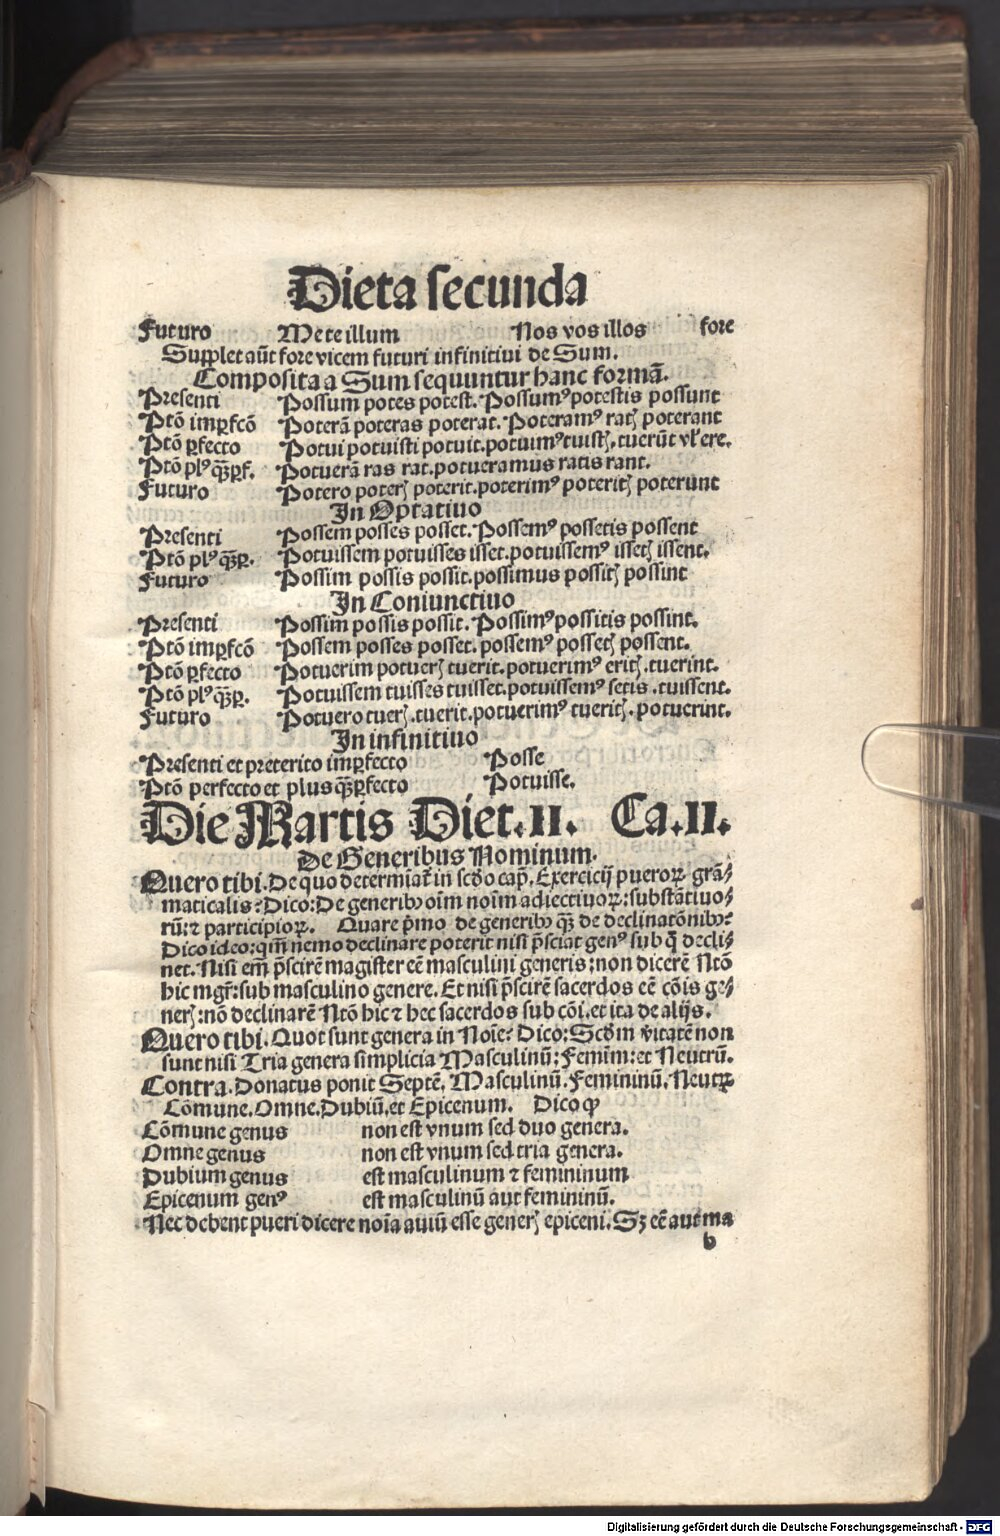 Dieta secunda
Futuro Me te illum Nos vos illos fore
Supplet aūt fore vicem futuri infinitiui de Sum.
Composita a Sum sequuntur hanc formā.
Presenti Possum potes potest. Possumꝰ potestis possunt
Ptō imꝑfcō Poterā poteras poterat. Poteramꝰ ratꝭ poterant
Ptō ꝑfecto Potui potuisti potuit. potuimꝰ tuistꝭ. tuerūt vl' ere.
Ptō plꝰ qȝꝑf. Potuerā ras rat. potueramus ratis rant.
Futuro Potero poterꝭ poterit. poterimꝰ poteritꝭ poterunt
In Optatiuo
Presenti Possem posses posset. Possemꝰ possetis possent
Ptō plꝰ qȝꝑ. Potuissem potuisses isset. potuissemꝰ issetꝭ issent.
Futuro Possim possis possit. possimus possitꝭ possint
In Coniunctiuo
Presenti Possim possis possit. Possimꝰ possitis possint.
Ptō imꝑfcō Possem posses posset. possemꝰ possetꝭ possent.
Ptō ꝑfecto Potuerim potuerꝭ tuerit. potuerimꝰ eritꝭ. tuerint.
Ptō plꝰ qȝꝑ. Potuissem tuisses tuisset. potuissemꝰ setis. tuissent.
Futuro Potuero tuerꝭ. tuerit. potuerimꝰ tueritꝭ. potuerint.
In infinitiuo
Presenti et preterito imꝑfecto Posse
Ptō perfecto et plus qȝꝑfecto Potuisse.
Die Martis Diet. II. Ca. II.
De Generibus Nominum.
Quero tibi. De quo determiat̄ in scd̄o cap̄. Exercicij pueroꝝ grā⸗
maticalis? Dico: De generibꝰ oīm noīm adiectiuoꝝ: substātiuo⸗
rū: ⁊ participioꝝ. Quare p̄mo de generibꝰ qȝ de declinatōnibꝰ?
Dico ideo: qm̄ nemo declinare poterit nisi p̄sciat genꝰ sub q̄ decli⸗
net. Nisi em̄ p̄scirē magister eē masculini generis: non dicerē Ntō
hic mgr̄: sub masculino genere. Et nisi p̄scirē sacerdos eē cōis ge⸗
nerꝭ: nō declinarē Ntō hic ⁊ hec sacerdos sub cōi. et ita de alijs.
Quero tibi. Quot sunt genera in Noīe? Dico: Scd̄m v̄itatē non
sunt nisi Tria genera simplicia Masculinū: Femīm: et Neutrū.
Contra. Donatus ponit Septē. Masculinū. Femininū. Neutꝝ
Cōmune. Omne. Dubiū. et Epicenum. Dico ꝙ
Cōmune genus non est vnum sed duo genera.
Omne genus non est vnum sed tria genera.
Dubium genus est masculinum ⁊ femininum
Epicenum genꝰ est masculinū aut femininū.
Nec debent pueri dicere noīa auiū esse generꝭ epiceni. Sȝ eē aut ma
b
Digitalisierung gefördert durch die Deutsche Forschungsgemeinschaft - DFG